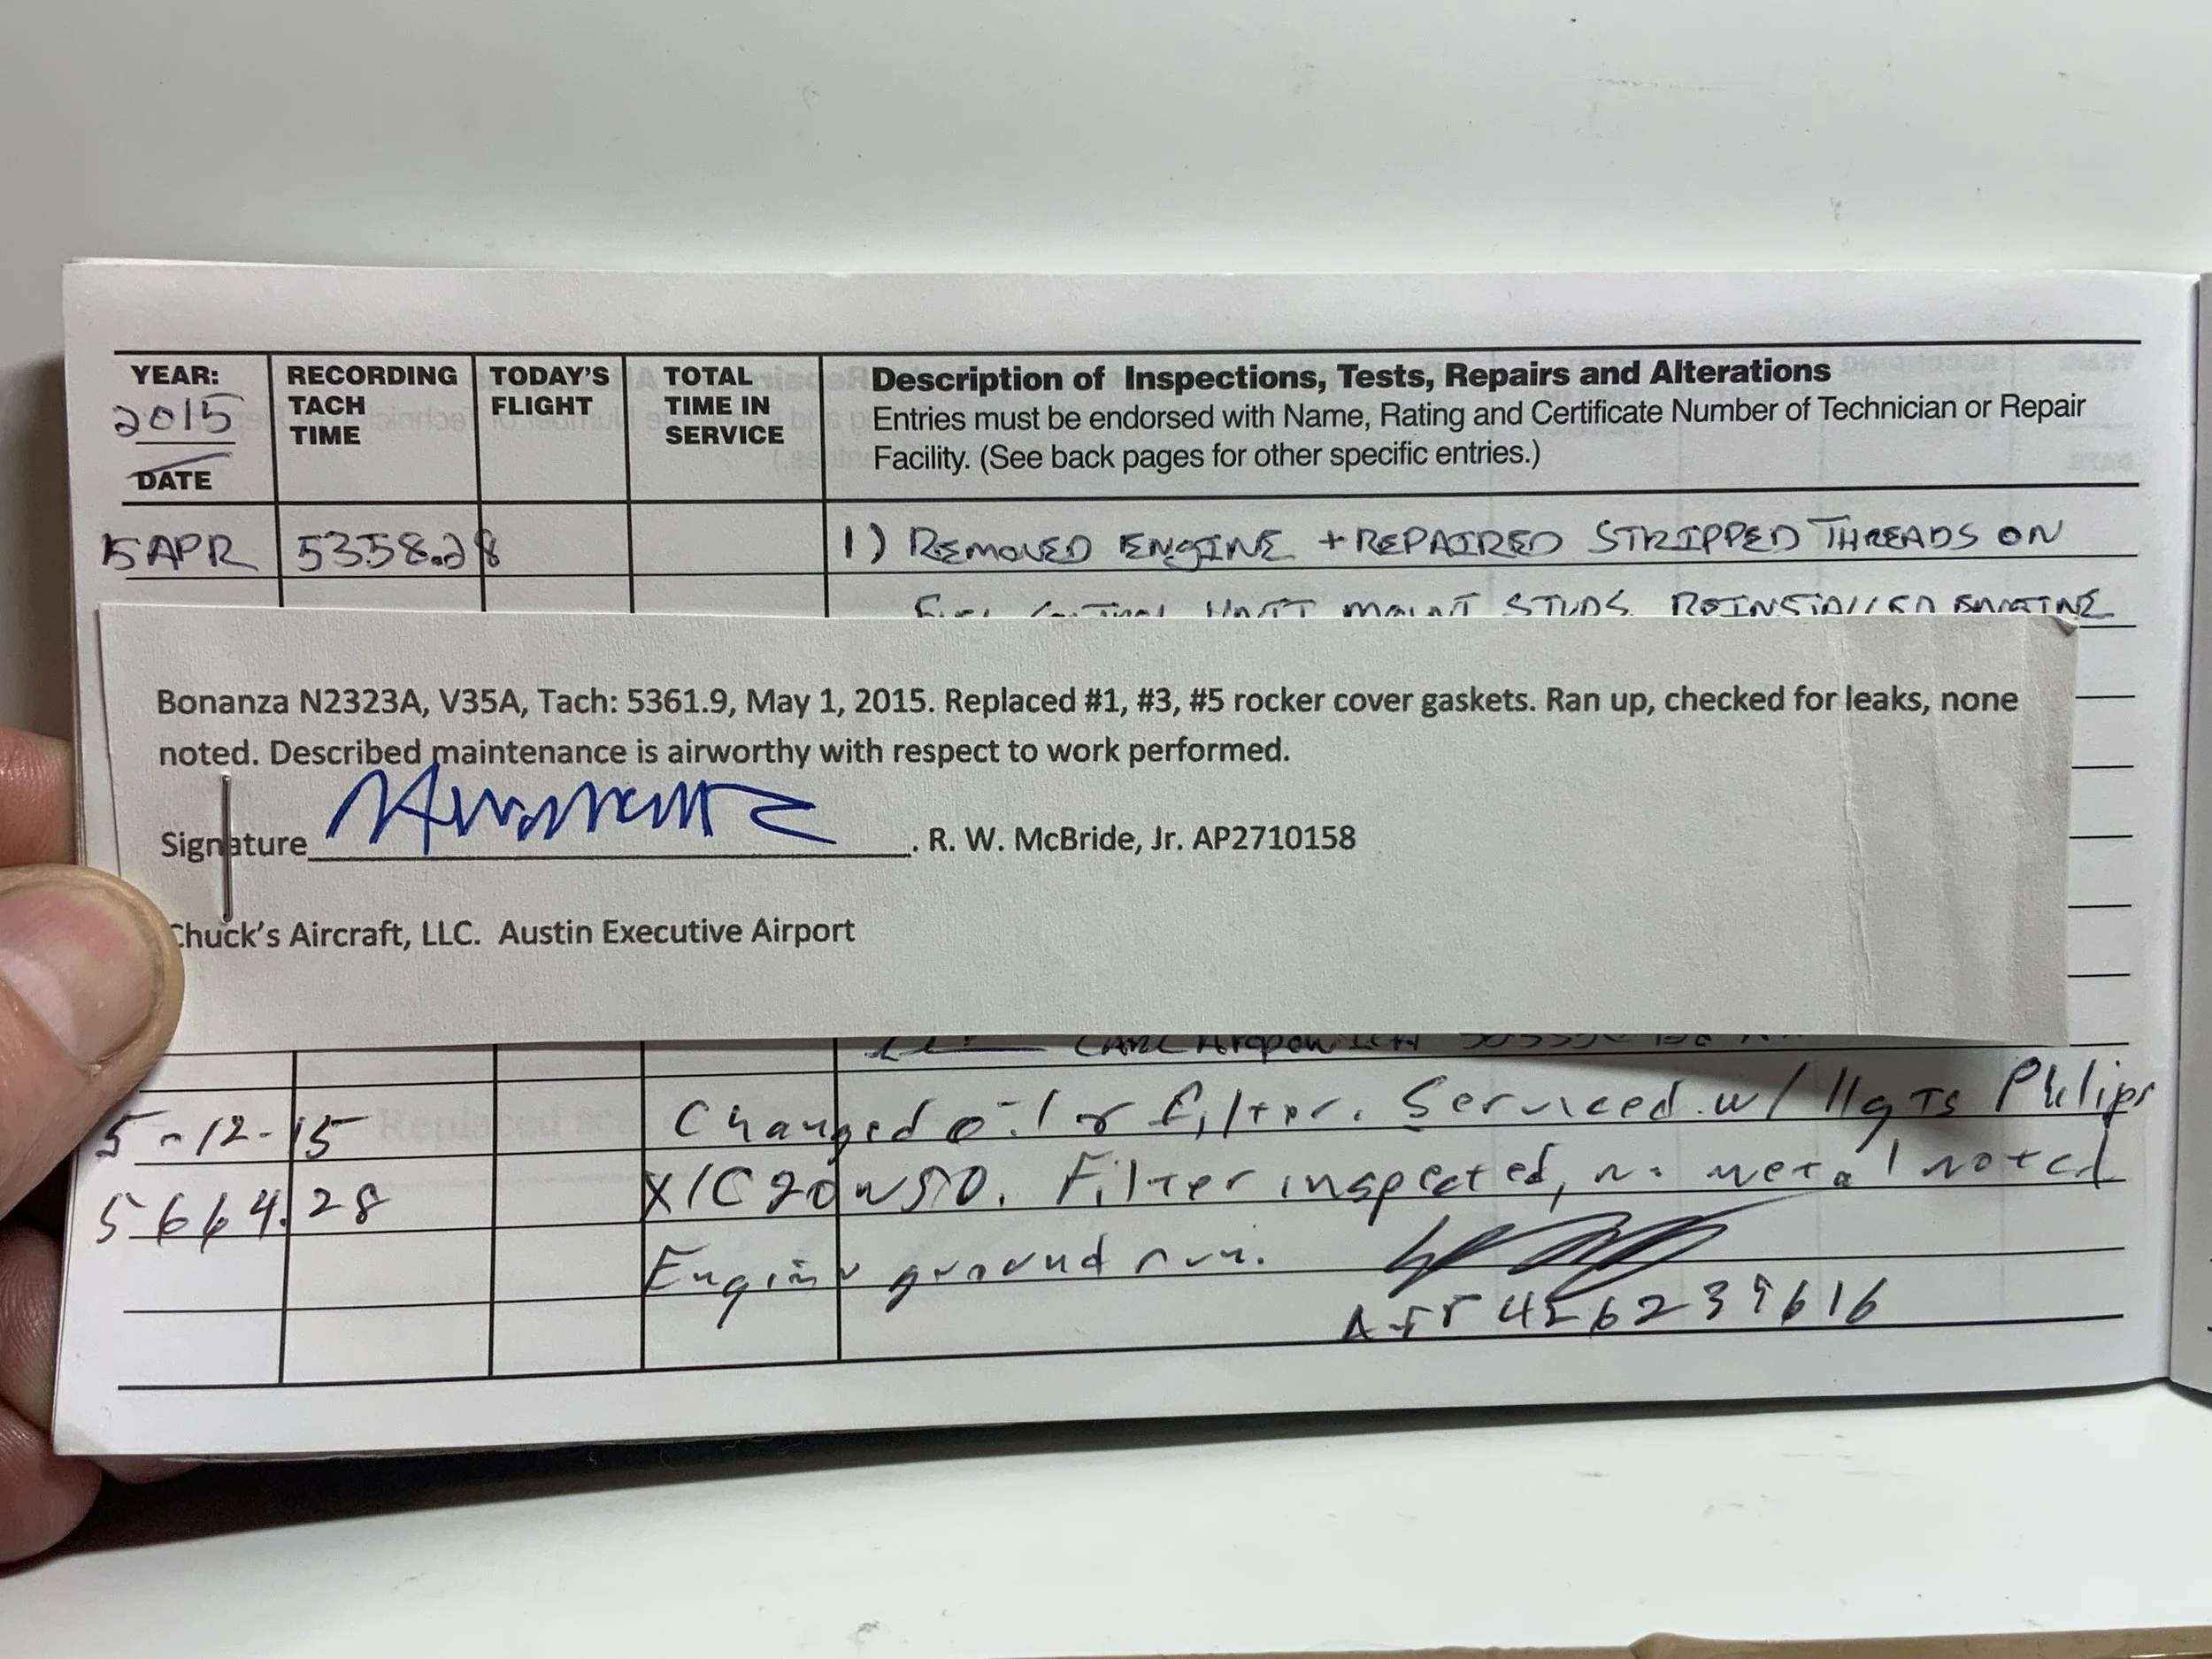 YEAR:
2015
DATE
RECORDING
TACH
TIME
TODAY'S
FLIGHT
TOTAL
TIME IN
SERVICE
Description of Inspections, Tests, Repairs and Alterations
Entries must be endorsed with Name, Rating and Certificate Number of Technician or Repair
Facility. (See back pages for other specific entries.)
15 APR 5358.28 1) REMOVED ENGINE + REPAIRED STRIPPED THREADS ON
FUEL CONTROL UNIT MOUNT STUDS. REINSTALLED ENGINE
Bonanza N2323A, V35A, Tach: 5361.9, May 1, 2015. Replaced #1, #3, #5 rocker cover gaskets. Ran up, checked for leaks, none
noted. Described maintenance is airworthy with respect to work performed.
Signature . R. W. McBride, Jr. AP2710158
Chuck's Aircraft, LLC. Austin Executive Airport
5-12-15 Changed oil & filter. Serviced w/ 11 qts Philips
5664.28 X/C 20w50. Filter inspected, no metal noted
Engine ground run.
426239616